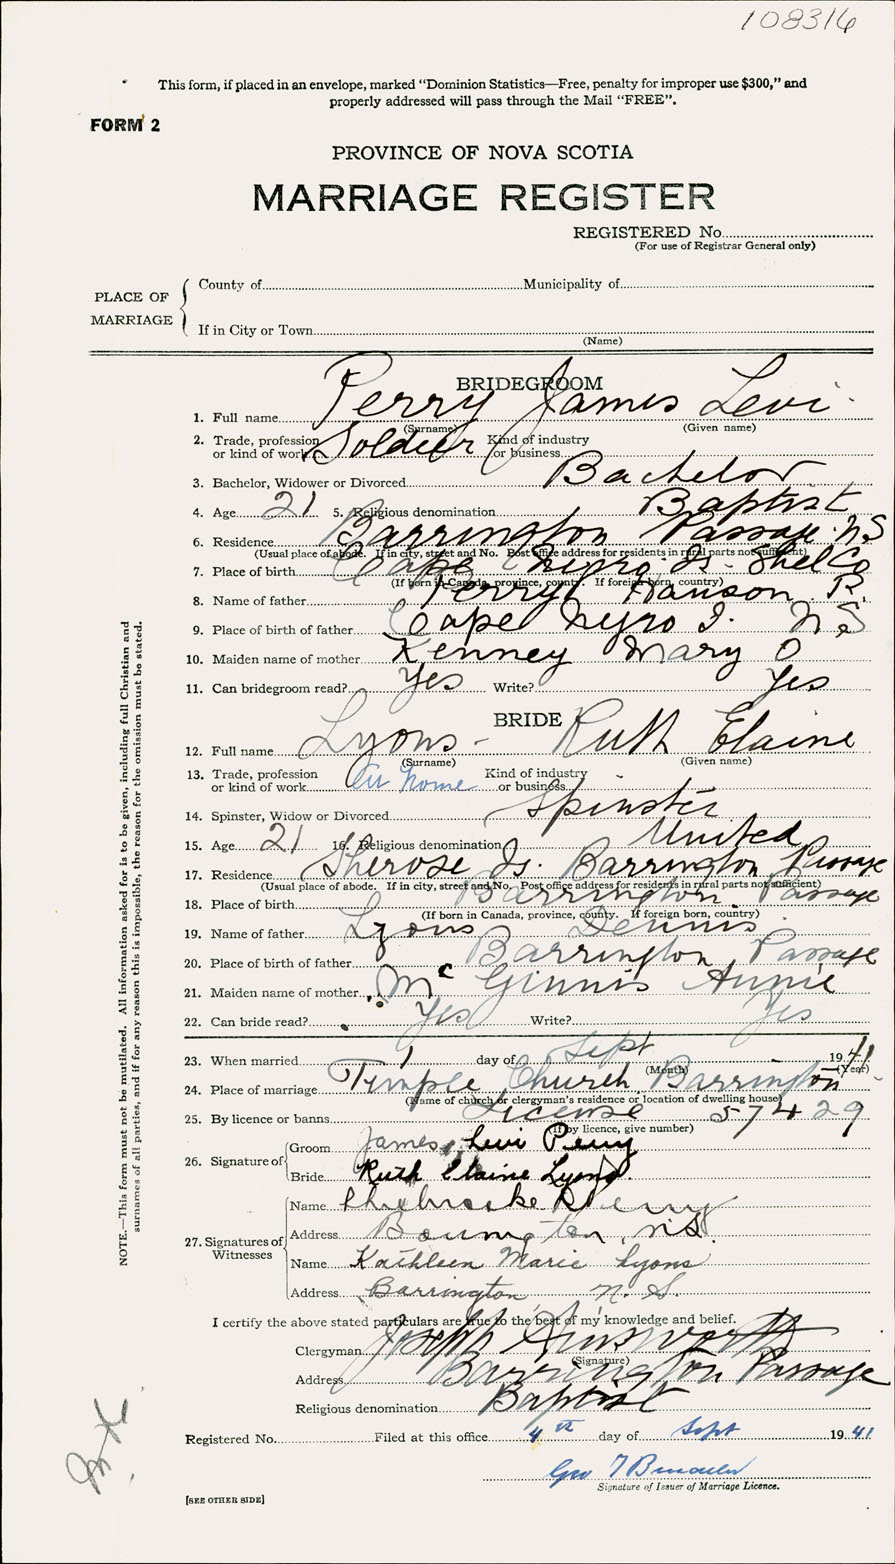 108316
This form, if placed in an envelope, marked “Dominion Statistics—Free, penalty for improper use $300,” and
properly addressed will pass through the Mail “FREE”.
FORM 2
PROVINCE OF NOVA SCOTIA
MARRIAGE REGISTER
REGISTERED No.
(For use of Registrar General only)
PLACE OF MARRIAGE
County of Municipality of
If in City or Town
(Name)
BRIDEGROOM
1. Full name Perry James Levi
(Surname) (Given name)
2. Trade, profession or kind of work Soldier Kind of industry or business
3. Bachelor, Widower or Divorced Bachelor
4. Age 21 5. Religious denomination Baptist
6. Residence Barrington Passage N.S
(Usual place of abode. If in city, street and No. Post office address for residents in rural parts not sufficient)
7. Place of birth Cape Negro Is. Shel Co
(If born in Canada, province, county. If foreign born, country)
8. Name of father Perry Hanson R.
9. Place of birth of father Cape Negro I. N.S
10. Maiden name of mother Kenney Mary O
11. Can bridegroom read? Yes Write? Yes
BRIDE
12. Full name Lyons - Ruth Elaine
(Surname) (Given name)
13. Trade, profession or kind of work At home Kind of industry or business
14. Spinster, Widow or Divorced Spinster
15. Age 21 16. Religious denomination United
17. Residence Sherose Is. Barrington Passage
(Usual place of abode. If in city, street and No. Post office address for residents in rural parts not sufficient)
18. Place of birth Barrington Passage
(If born in Canada, province, county. If foreign born, country)
19. Name of father Lyons Dennis
20. Place of birth of father Barrington Passage
21. Maiden name of mother McGinnis Annie
22. Can bride read? Yes Write? Yes
23. When married 1 day of Sept 1941
(Month) (Year)
24. Place of marriage Temple Church Barrington
(Name of church or clergyman's residence or location of dwelling house)
25. By licence or banns License 57429
(If by licence, give number)
26. Signature of Groom James Levi Perry
Bride Ruth Elaine Lyons
27. Signatures of Witnesses
Name Perry
Address Barrington, N.S.
Name Kathleen Marie Lyons
Address Barrington N. S.
I certify the above stated particulars are true to the best of my knowledge and belief.
Clergyman Joseph Ainsworth
(Signature)
Address Barrington Passage
Religious denomination Baptist
Registered No. Filed at this office 4th day of Sept 1941
Geo T
Signature of Issuer of Marriage Licence.
[SEE OTHER SIDE]
NOTE.—This form must not be mutilated. All information asked for is to be given, including full Christian and
surnames of all parties, and if for any reason this is impossible, the reason for the omission must be stated.